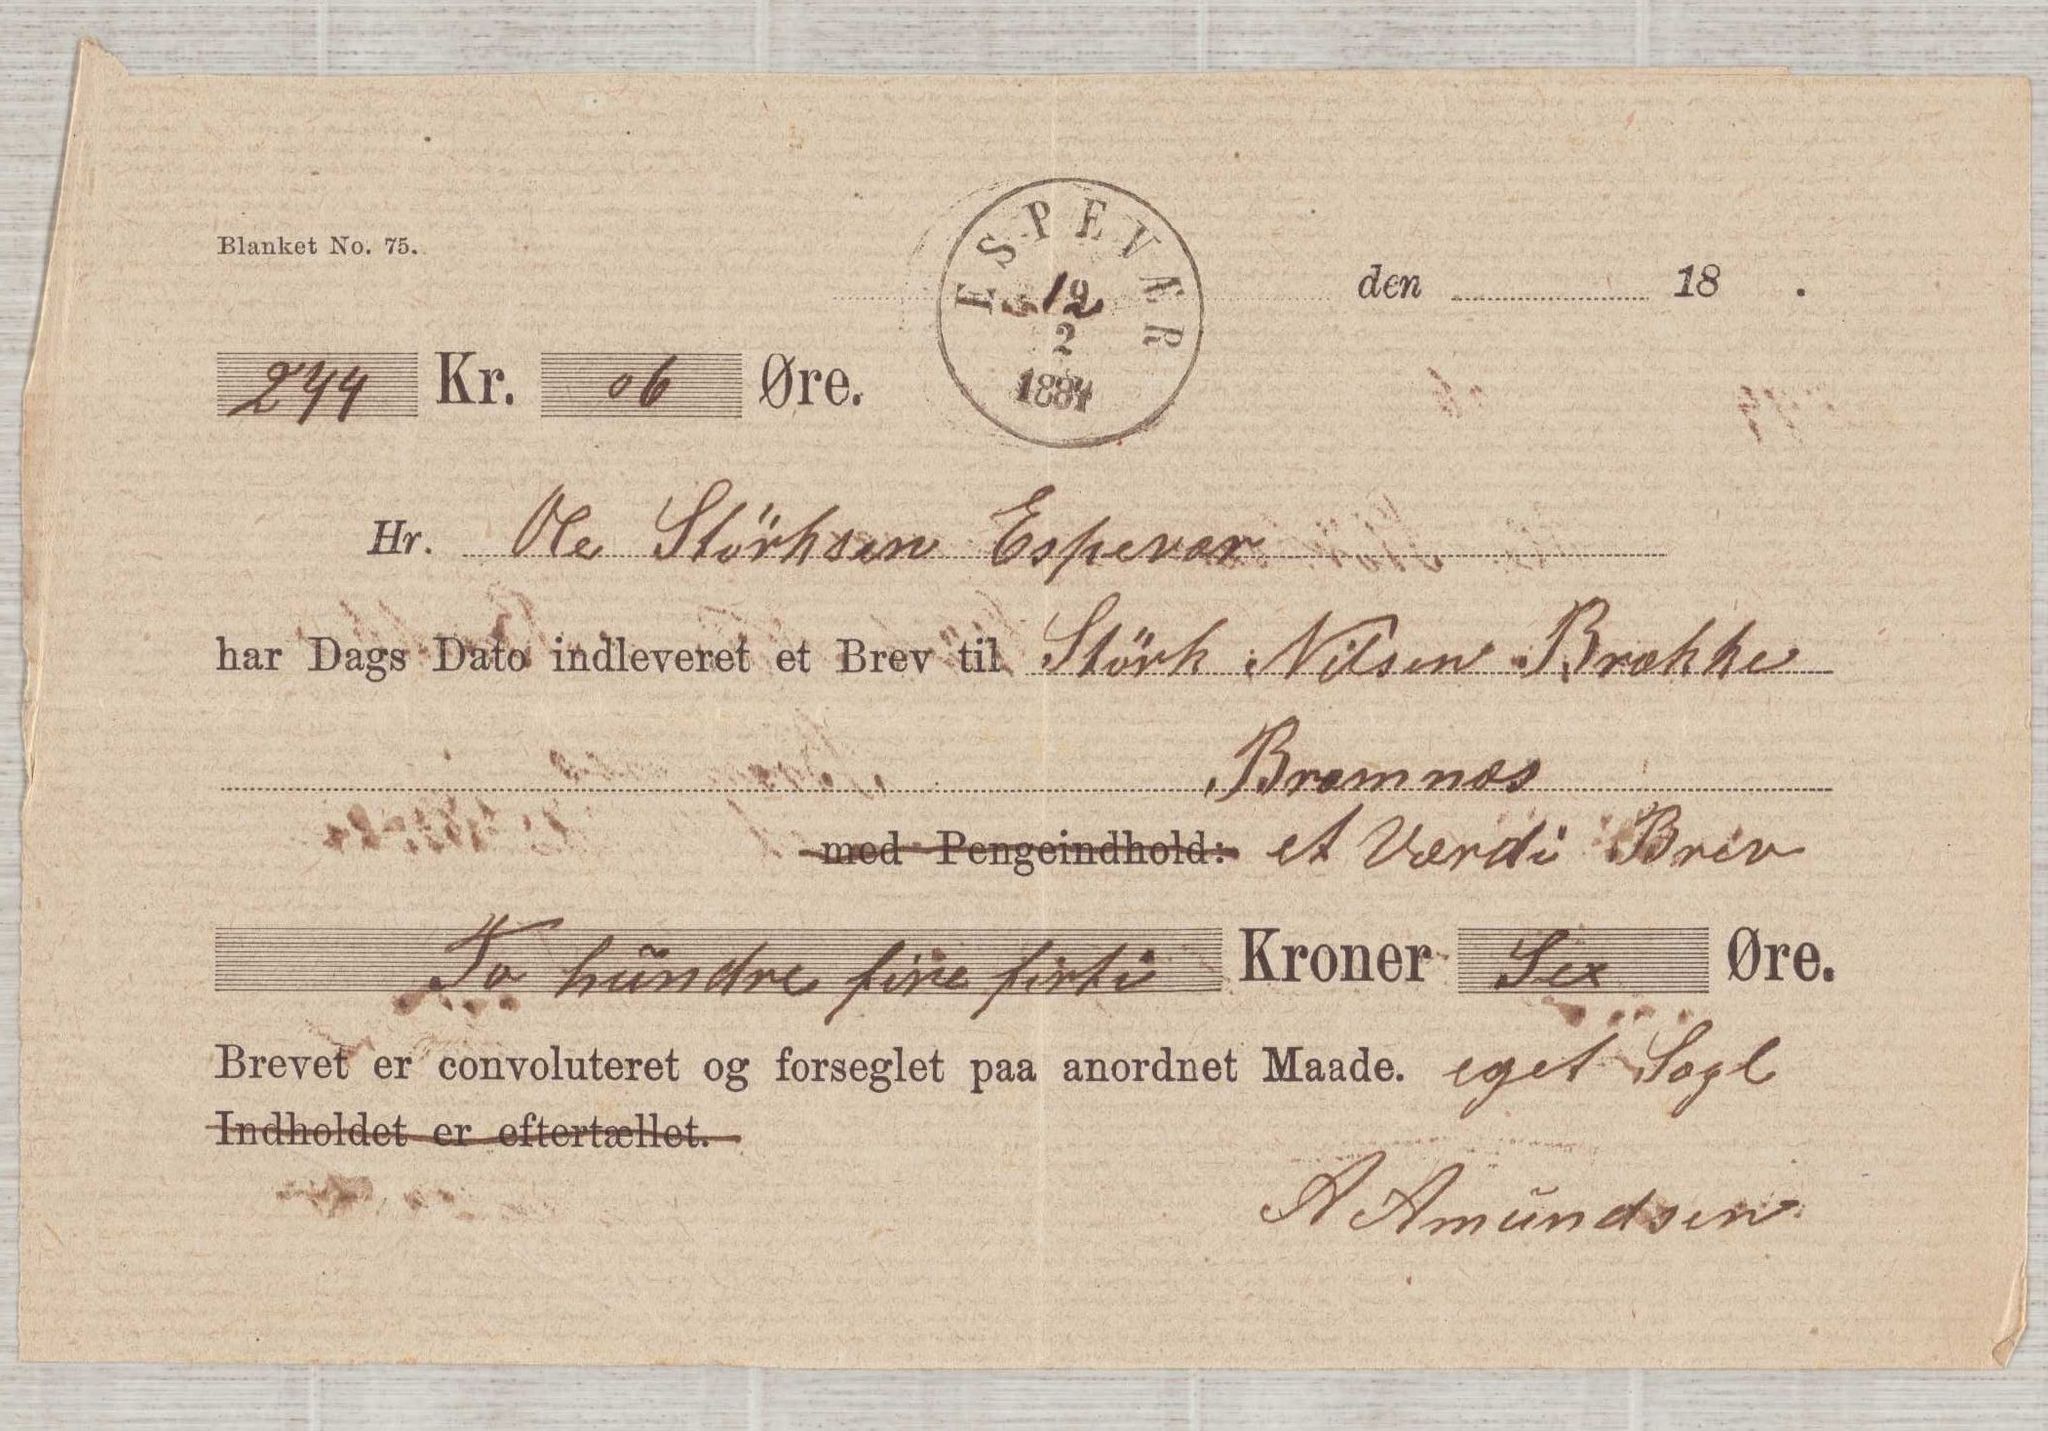 Blanket No. 75.
ESPEVÆR
2
1884
den 18 .
244 Kr. 06 Øre.
Hr. Ole Störksen Espevær
har Dags Dato indleveret et Brev til Störk Nilsen Brække
Bremnæs
med Pengeindhold: et Værdi Brev
To hundre fire firti Kroner Sex Øre.
Brevet er convoluteret og forseglet paa anordnet Maade. eget Segl
Indholdet er eftertællet.
A Amundsen